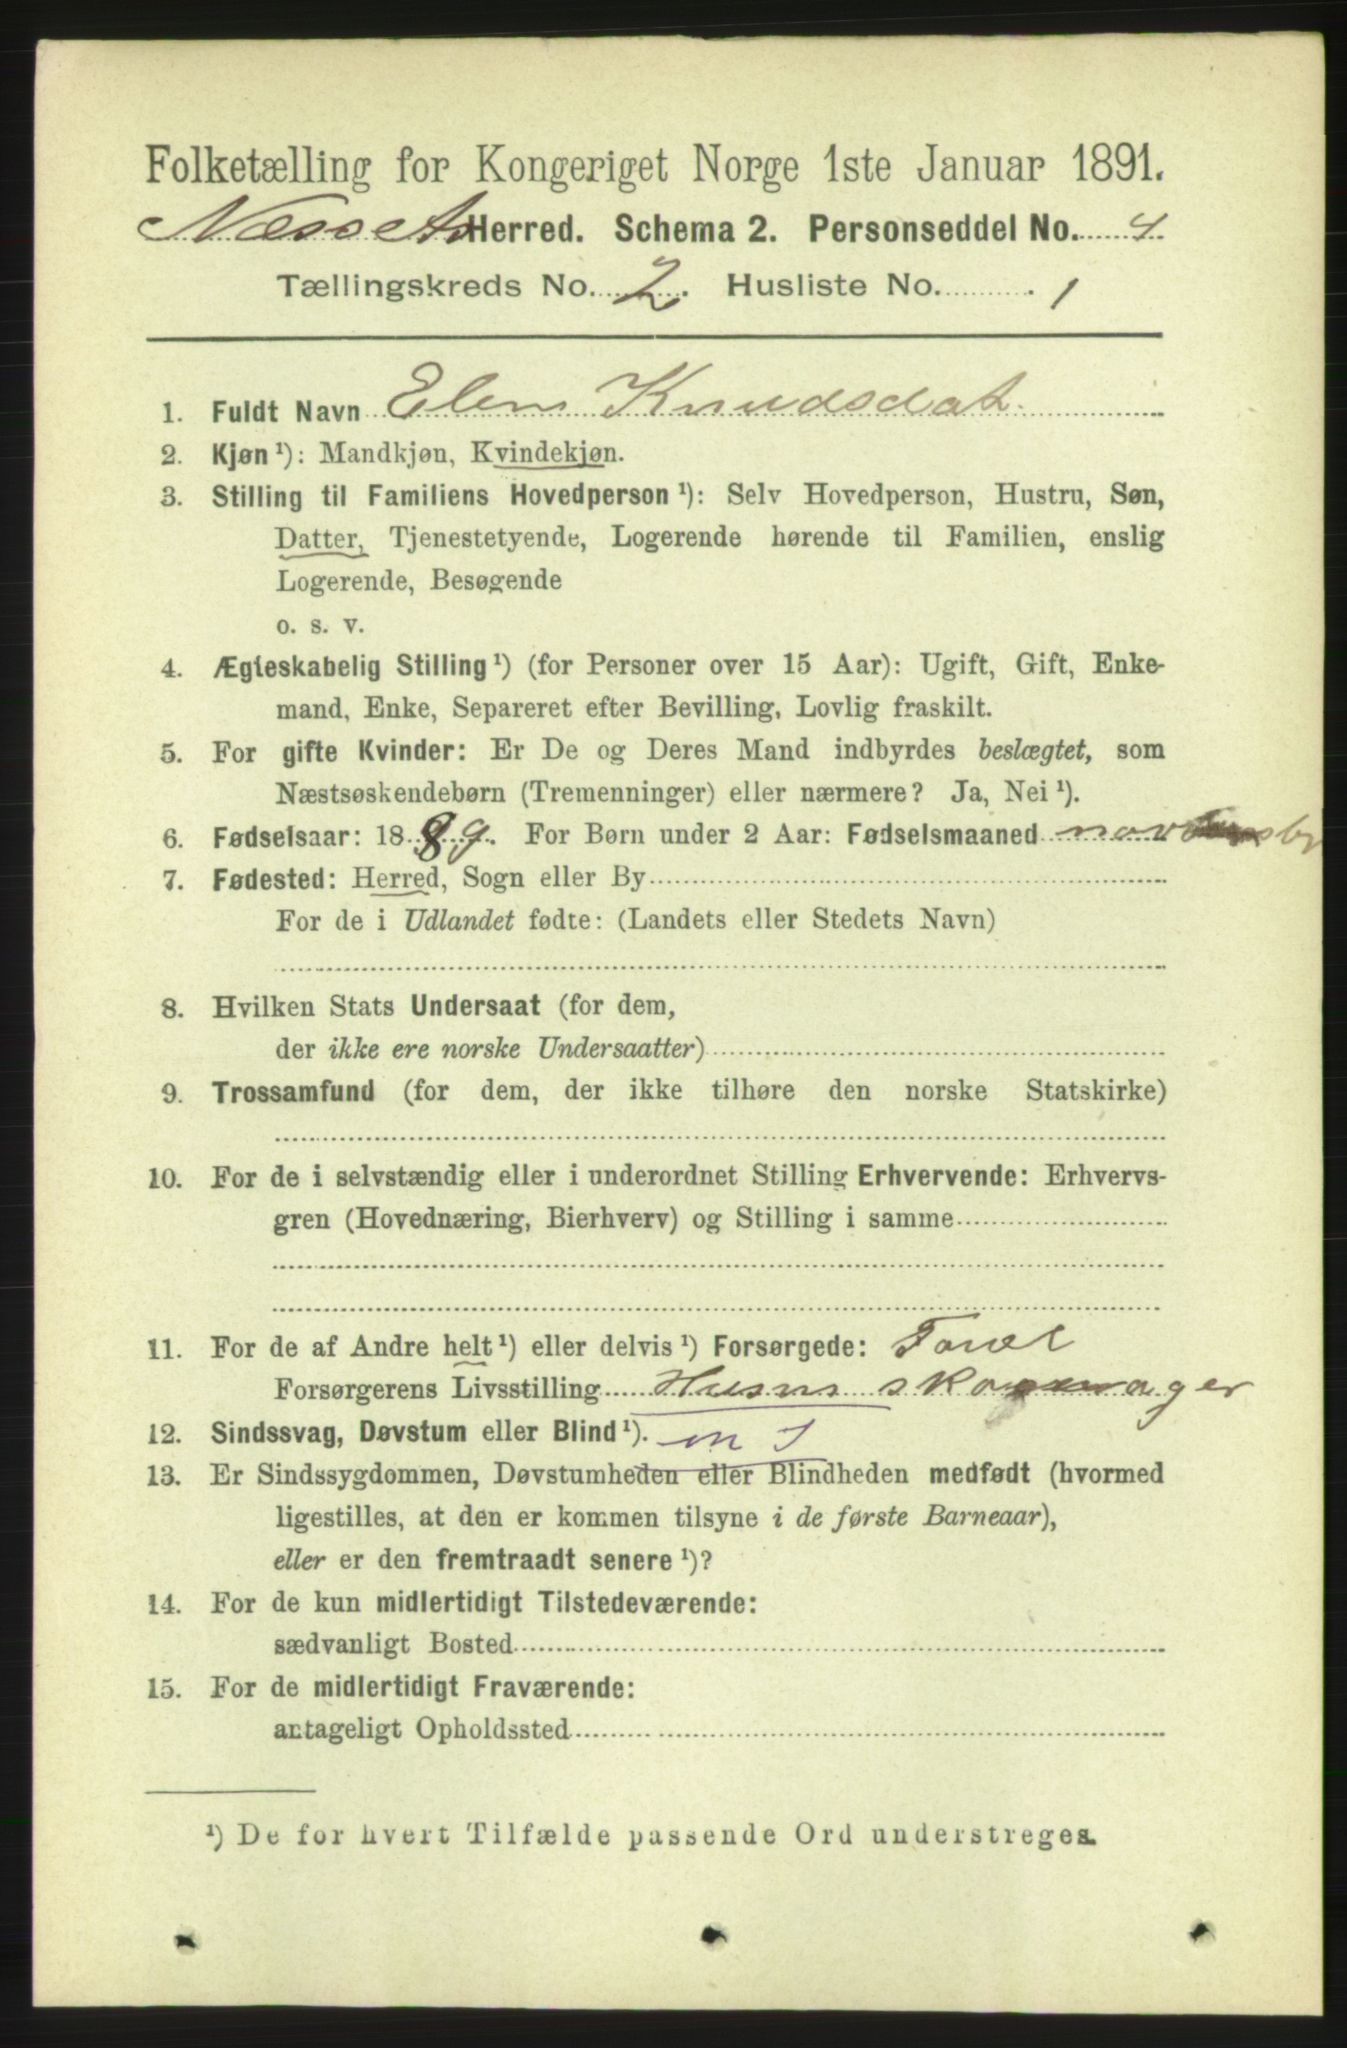 Folketælling for Kongeriget Norge 1ste Januar 1891.
Næssets Herred. Schema 2. Personseddel No. 4
Tællingskreds No. 2. Husliste No. 1
1. Fuldt Navn Elen Knudsdat.
2. Kjøn ¹): Mandkjøn, Kvindekjøn.
3. Stilling til Familiens Hovedperson ¹): Selv Hovedperson, Hustru, Søn,
Datter, Tjenestetyende, Logerende hørende til Familien, enslig
Logerende, Besøgende
o. s. v.
4. Ægteskabelig Stilling ¹) (for Personer over 15 Aar): Ugift, Gift, Enke-
mand, Enke, Separeret efter Bevilling, Lovlig fraskilt.
5. For gifte Kvinder: Er De og Deres Mand indbyrdes beslægtet, som
Næstsøskendebørn (Tremenninger) eller nærmere? Ja, Nei ¹).
6. Fødselsaar: 1889. For Børn under 2 Aar: Fødselsmaaned
7. Fødested: Herred, Sogn eller By
For de i Udlandet fødte: (Landets eller Stedets Navn)
8. Hvilken Stats Undersaat (for dem,
der ikke ere norske Undersaatter)
9. Trossamfund (for dem, der ikke tilhøre den norske Statskirke)
10. For de i selvstændig eller i underordnet Stilling Erhvervende: Erhvervs-
gren (Hovednæring, Bierhverv) og Stilling i samme
11. For de af Andre helt ¹) eller delvis ¹) Forsørgede:
Forsørgerens Livsstilling Husm
12. Sindssvag, Døvstum eller Blind ¹).
13. Er Sindssygdommen, Døvstumheden eller Blindheden medfødt (hvormed
ligestilles, at den er kommen tilsyne i de første Barneaar),
eller er den fremtraadt senere ¹)?
14. For de kun midlertidigt Tilstedeværende:
sædvanligt Bosted
15. For de midlertidigt Fraværende:
antageligt Opholdssted
¹) De for hvert Tilfælde passende Ord understreges.